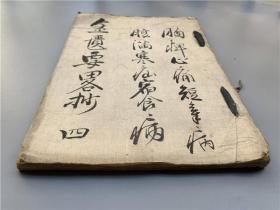 胸痺心痛短氣病
腹滿寒疝宿食病
金匱要畧抄 四